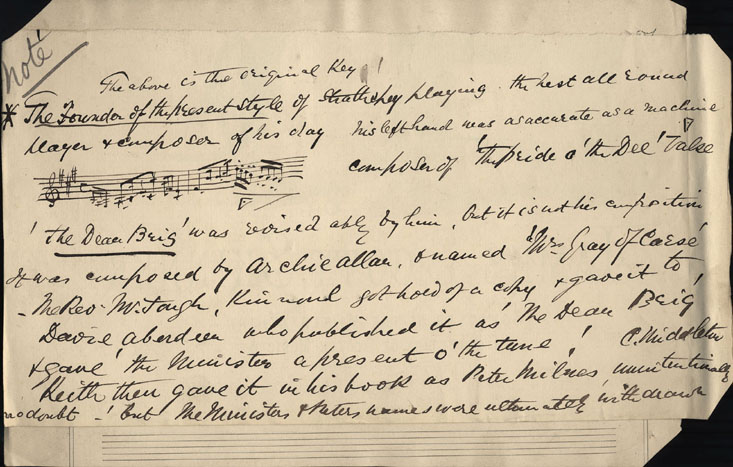 Note
The above is the original Key!
* The Founder of the present style of Strathspey playing. the best all round
player & composer of his day his left hand was as accurate as a machine
composer of 'The pride o' the Dee' Valse
'The Dean Brig' was revised ably by him, but it is not his composition
It was composed by Archie Allan, & named 'Mrs Gray of Carse'
- The Rev. Mr. Tough, Kinnoul got hold of a copy & gave it to
Davie Aberdeen who published it as 'The Dean Brig'
& gave 'the Minister a present o' the tune'! C. Middleton
Keith then gave it in his book as Peter Milnes unintentionally
no doubt -! but The Ministers & Peters names were ultimately withdrawn